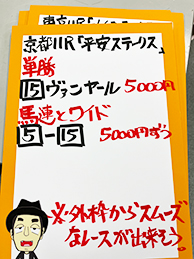 東京11R「
京都11R「平安ステークス」
単勝
15 ヴァンヤール 5000円
馬連とワイド
5-15 5000円ずつ
一発外枠からスムーズ
なレースが出来そう。